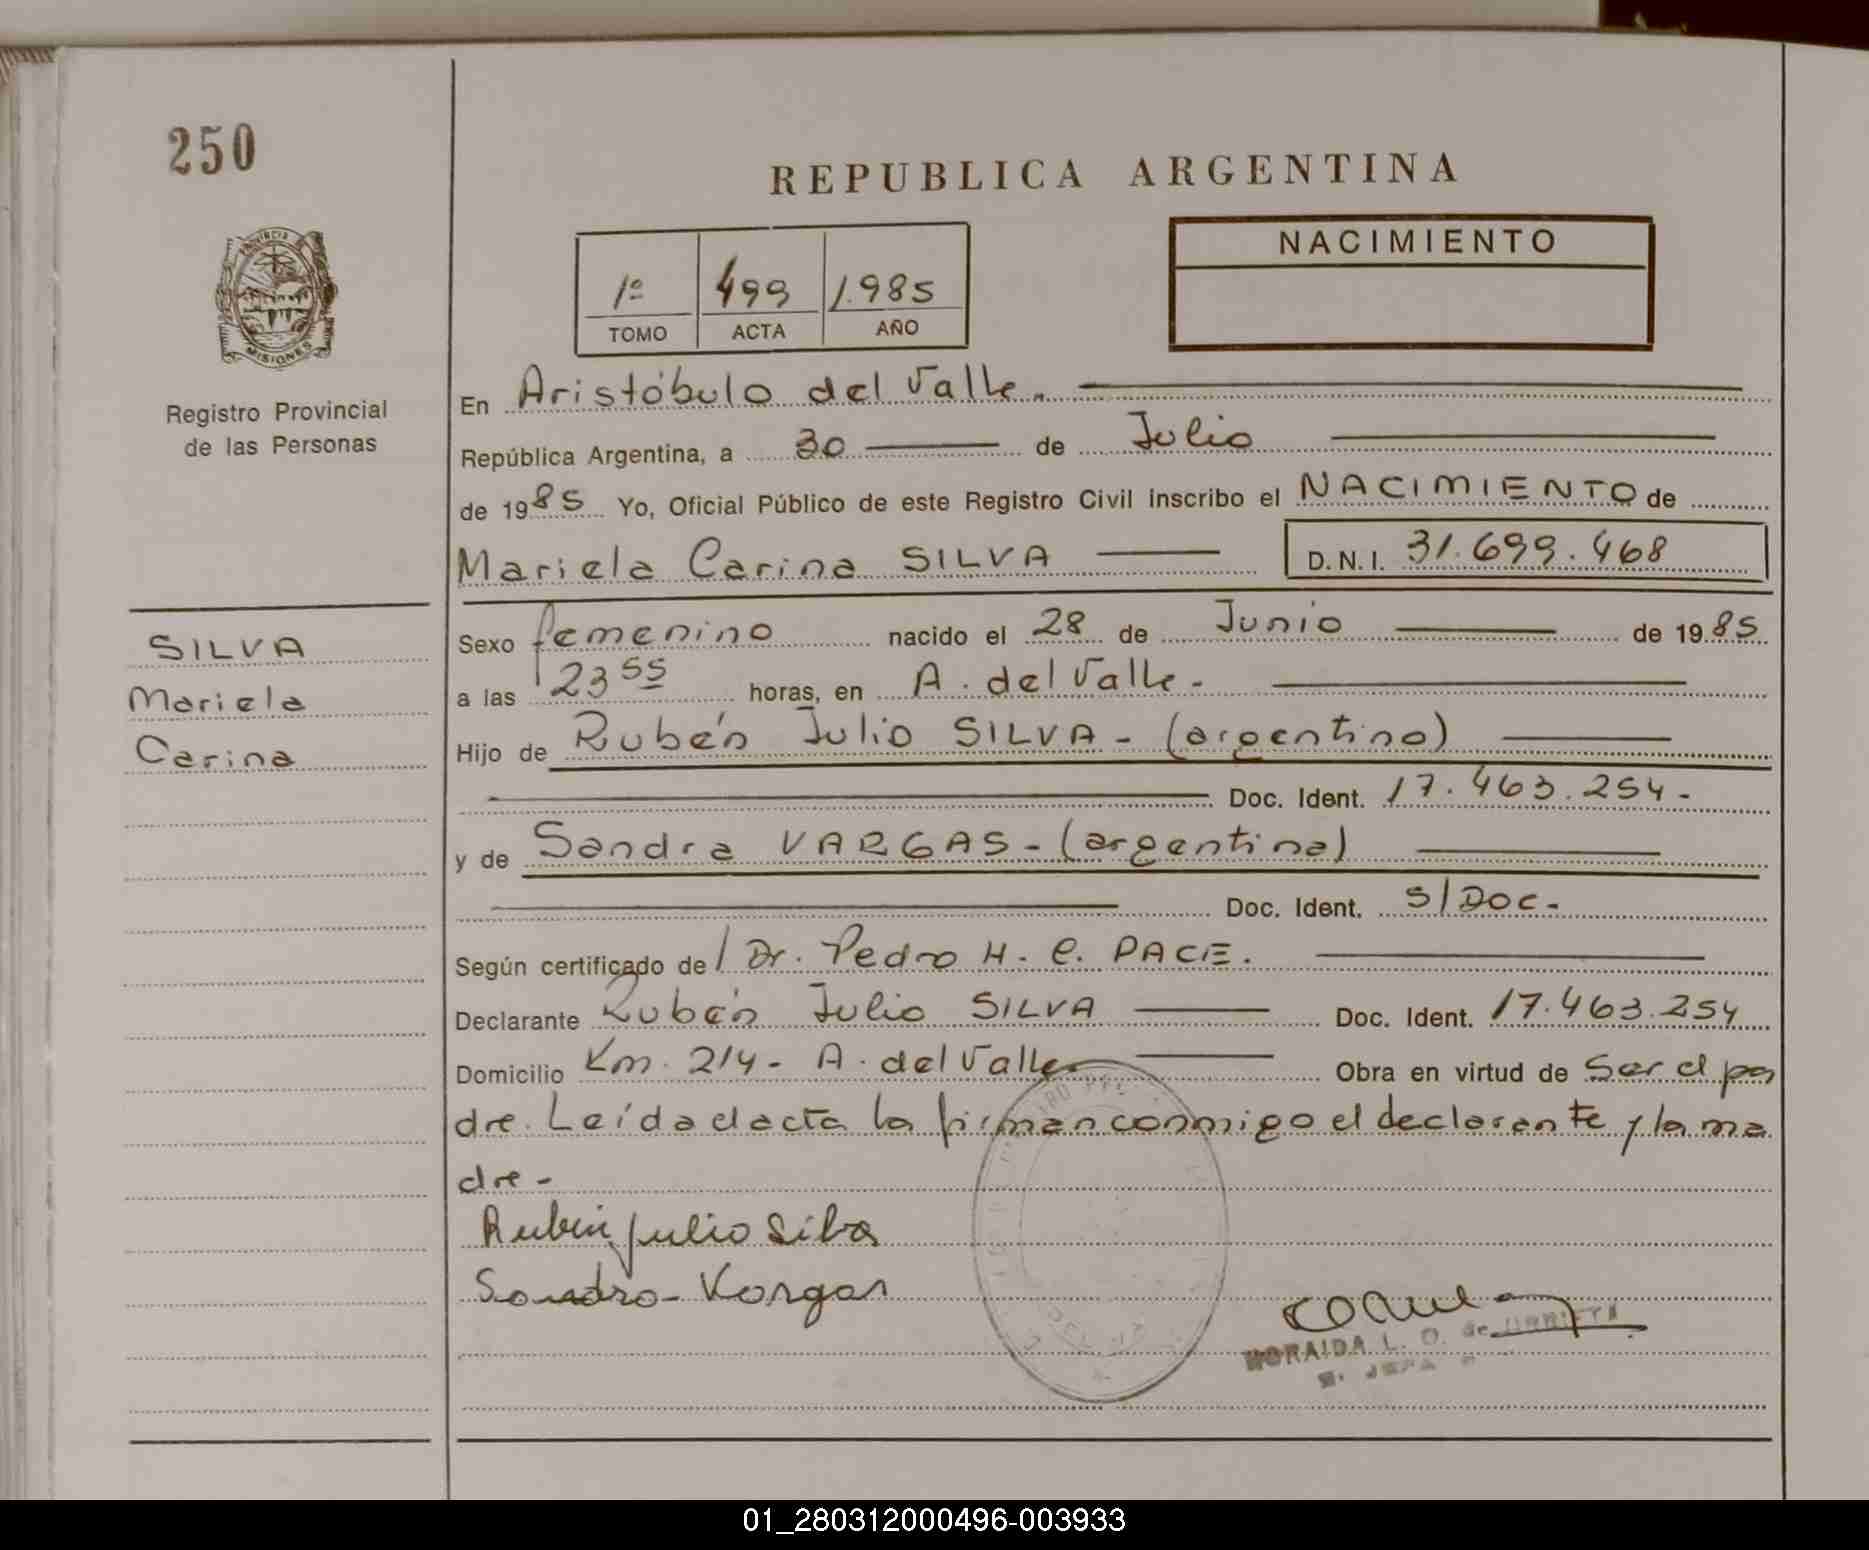 250
REPUBLICA ARGENTINA
PROVINCIA
MISIONES
Registro Provincial
de las Personas
1º 499 1.985
TOMO ACTA AÑO
NACIMIENTO
En Aristóbulo del Valle.
República Argentina, a 30 de Julio
de 1985 Yo, Oficial Público de este Registro Civil inscribo el NACIMIENTO de
Mariela Carina SILVA D.N.I. 31.699.468
SILVA
Mariela
Carina
Sexo femenino nacido el 28 de Junio de 1985
a las 23 55 horas, en A. del Valle.
Hijo de Rubén Julio SILVA - (argentino)
Doc. Ident. 17.463.254.
y de Sandra VARGAS - (argentina)
Doc. Ident. S/Doc.
Según certificado de Dr. Pedro H. C. PACE.
Declarante Rubén Julio SILVA Doc. Ident. 17.463.254
Domicilio Km. 214 - A. del Valle Obra en virtud de ser el pa
dre. Leída el acta la firman conmigo el declarante y la ma
dre -
Ruben Julio Silva
Sandra Vargas
L. O. de
01_280312000496-003933